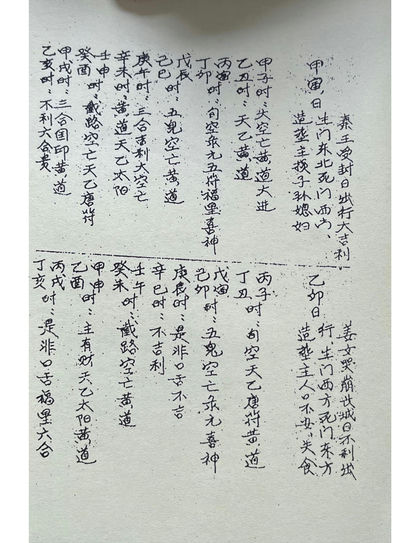 甲寅,日
秦王受封日出行大吉利
生门东北死门西南、
造葬主损子孙媳妇
甲子时:大空亡黄道大进
乙丑时:天乙黄道
丙寅
丁卯 时:旬空乐元五符福星喜神
戊辰
己巳 时:五鬼空亡黄道
庚午时:三合吉利大空亡
辛未时:黄道天乙太阳
壬申
癸酉 时:截路空亡天乙唐符
甲戌时:三合国印黄道
乙亥时:不利六合贵
乙卯日
姜女哭崩长城日不利出
行,生门西方死门东方
造葬主人口不安,失食
丙子
丁丑 时:旬空天乙唐符黄道
戊寅
己卯 时:五鬼空亡乐元喜神
庚辰时:是非口舌不吉
辛巳时:不吉利
壬午
癸未 时:截路空亡黄道
甲申
乙酉 时:主有财天乙太阳黄道
丙戌
丁亥 时:是非口舌福星六合